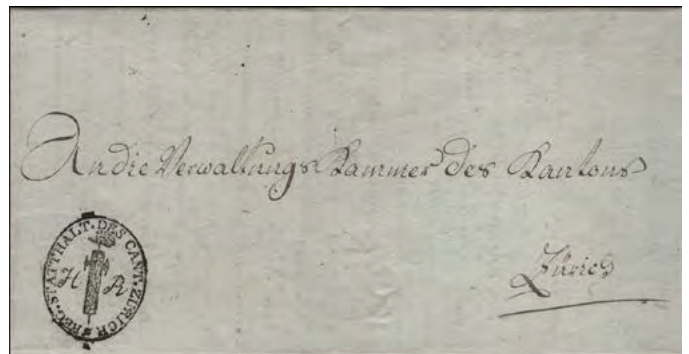 An die Verwaltungs Kammer des Kantons
Zürich
REG. STATTHALT. DES CANT. ZÜRICH
H R